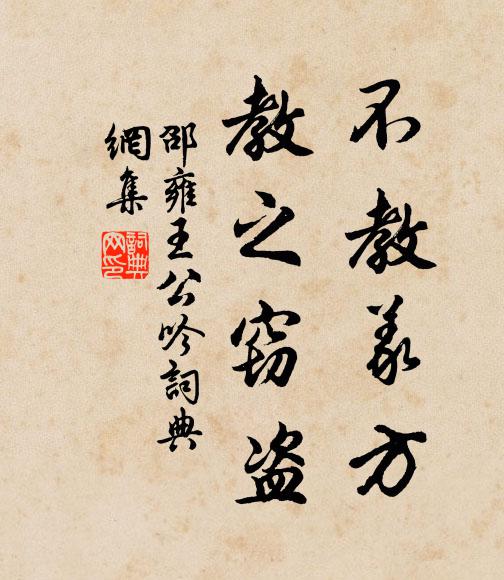 不教义方
教之窃盗
邵雍王公吟詞典
網集
詞典
网印